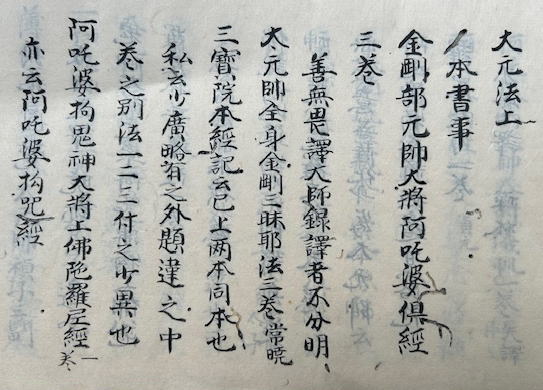 大元法上
一本書事
金剛部元帥大將阿吒婆倶經
三卷
善無畏譯大師録譯者不分明
大元帥全身金剛三昧耶法三卷常曉
三寳院本經記云已上両本同本也
私云少廣略有之外題違之中
卷之別法一二三付之少異也
阿吒婆拘鬼神大將上佛陀羅尼經一卷
亦云阿吒婆拘呪經